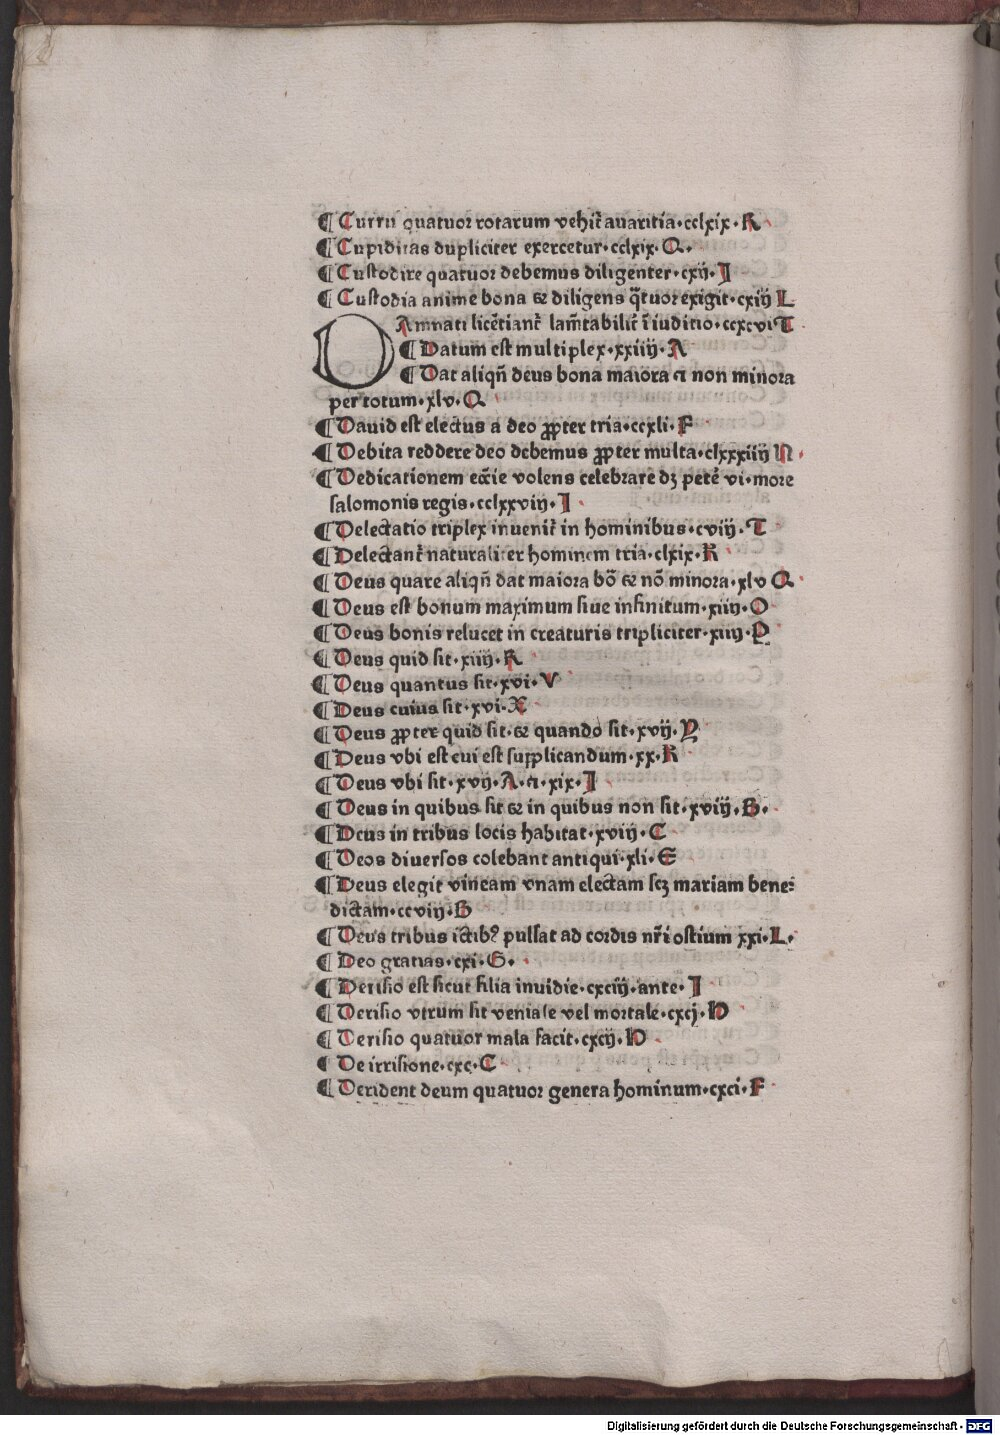 ¶ Curru quatuor rotarum vehit᷑ auaritia·cclxix·R
¶ Cupiditas dupliciter exercetur·cclxix·Q·
¶ Custodire quatuor debemus diligenter·cxij·J
¶ Custodia anime bona ⁊ diligens q̃tuor exigit·cxiij L
DAmnati licẽtiant᷑ lamẽtabilit᷑ ĩ iuditio·ccxcvi T
¶ Datum est multiplex·xxiiij·A
¶ Dat aliqñ deus bona maiora ⁊ non minora
per totum·xlv·Q
¶ Dauid est electus a deo ꝓpter tria·ccxli·F
¶ Debita reddere deo debemus ꝓpter multa·clxxxiiij N
¶ Dedicationem ecc̃ie volens celebrare dʒ peter̃ vi·more
salomonis regis·cclxxviij·J
¶ Delectatio triplex inuenit᷑ in hominibus·cviij·T
¶ Delectant᷑ naturaliter hominem tria·clxix·R
¶ Deus quare aliqñ dat maiora bõ ⁊ nõ minora·xlv Q
¶ Deus est bonum maximum siue infinitum·xiiij·O
¶ Deus bonis relucet in creaturis tripliciter·xiiij·P
¶ Deus quid sit·xiiij·R
¶ Deus quantus sit·xvi·V
¶ Deus cuius sit·xvi·X
¶ Deus ꝓpter quid sit·⁊ quando sit·xvij·Y
¶ Deus vbi est cui est supplicandum·xx·R
¶ Deus vbi sit·xvij·A·⁊·xix·J
¶ Deus in quibus sit ⁊ in quibus non sit·xviij·B·
¶ Deus in tribus locis habitat·xviij·C
¶ Deos diuersos colebant antiqui·xli·E
¶ Deus elegit vineam vnam electam scʒ mariam bene⸗
dictam·ccviij·B
¶ Deus tribus ictibꝰ pulsat ad cordis nr̃i ostium xxi·L·
¶ Deo gratias·cxi·G·
¶ Derisio est sicut filia inuidie·cxciij·ante·J
¶ Derisio vtrum sit veniale vel mortale·cxcj·H
¶ Derisio quatuor mala facit·cxcij·H
¶ De irrisione·cxc·C
¶ Derident deum quatuor genera hominum·cxci·F
Digitalisierung gefördert durch die Deutsche Forschungsgemeinschaft - DFG